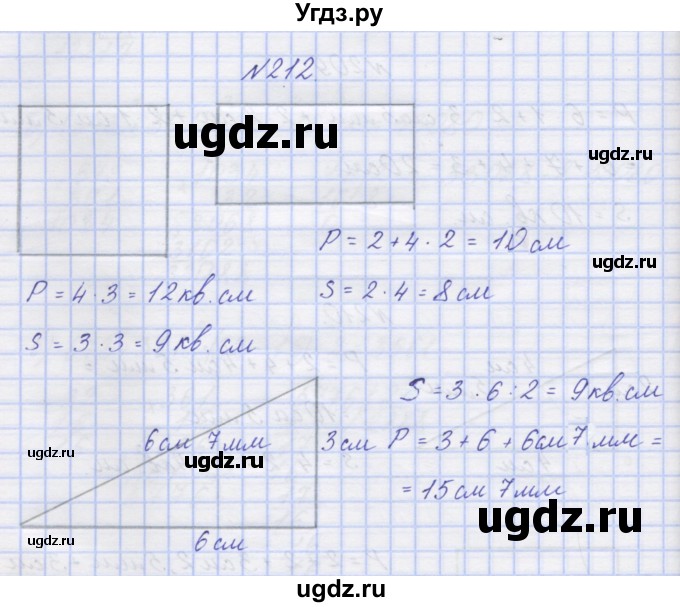 Угдз.ру
№212
ugdz.ru
ugdz.ru
P = 2+4·2 = 10см
ugdz.ru
P = 4·3 = 12кв.см
S = 2·4 = 8см
S = 3·3 = 9кв.см
S = 3·6:2 = 9кв.см
ugdz.ru
6см 7мм
ugdz.ru
3см
P = 3+6+6см7мм =
ugdz.ru
= 15см 7мм
ugdz.ru
ugdz.ru
6см
ugdz.ru